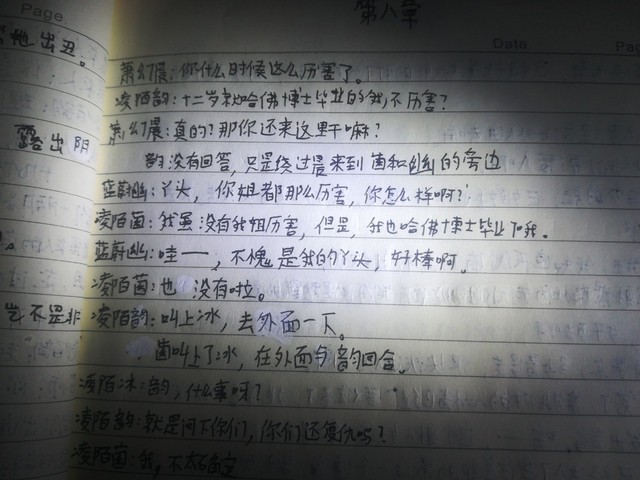 Page
第八章
Date
Pag
他出丑。
萧幻晨：你什么时候这么厉害了。
凌陌韵：十二岁就哈佛博士毕业的我，不厉害？
萧幻晨：真的？那你还来这里干嘛？
露出阴
韵没有回答，只是绕过晨来到茵和幽的旁边
蓝蔚幽：丫头，你姐都那么厉害，你怎么样啊？
凌陌茵：我虽没有我姐厉害，但是，我也哈佛博士毕业了哦。
蓝蔚幽：哇——，不愧是我的丫头，好棒啊。
凌陌茵：也没有啦。
岂不是非
凌陌韵：叫上冰，去外面一下。
茵叫上了冰，在外面与韵回合。
凌陌冰：韵，什么事呀？
凌陌韵：就是问下你们，你们还复仇吗？
凌陌茵：我，不太确定